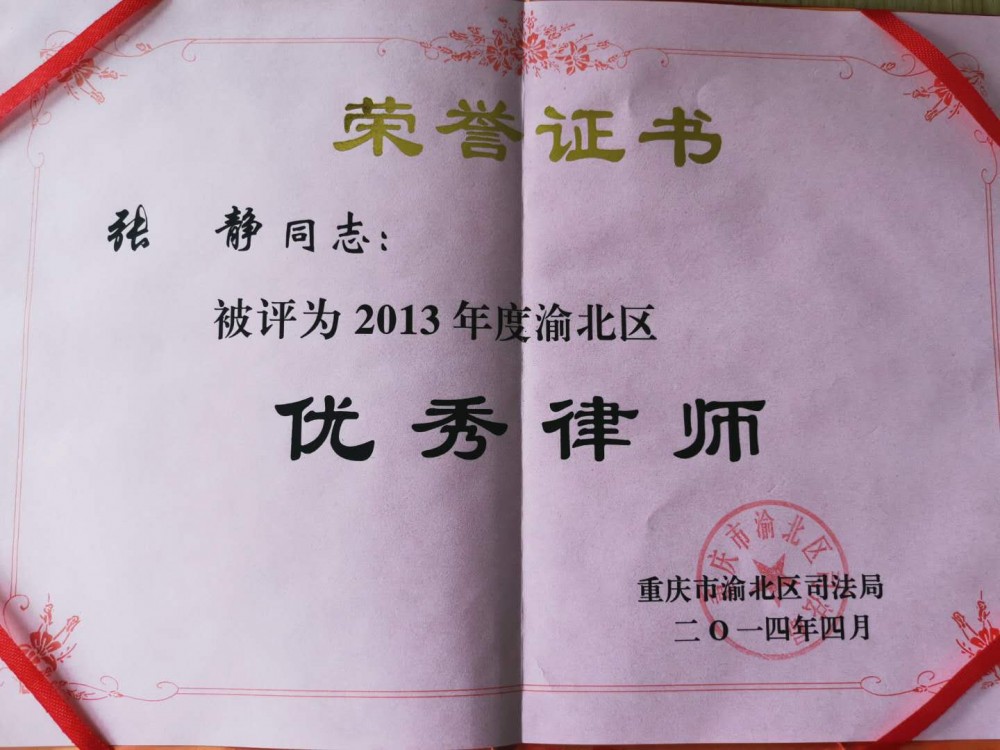 荣誉证书
张 静同志：
被评为 2013 年度渝北区
优秀律师
重庆市渝北区司法局
重庆市渝北区司法局
二O一四年四月